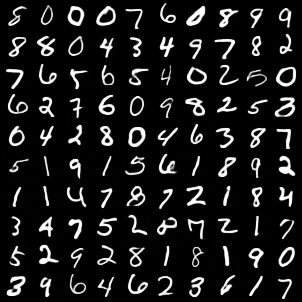 8 0 0 0 7 6 0 8 9 9
8 8 0 4 3 4 9 7 8 2
7 6 5 6 5 4 0 2 5 0
6 2 7 6 0 9 8 2 5 3
0 4 2 8 0 4 6 3 8 7
5 1 9 1 5 6 1 8 9 2
1 1 4 7 8 7 2 1 8 4
3 4 9 5 2 8 7 2 1 7
5 2 9 2 8 1 8 1 9 0
3 9 6 4 6 2 3 6 1 7